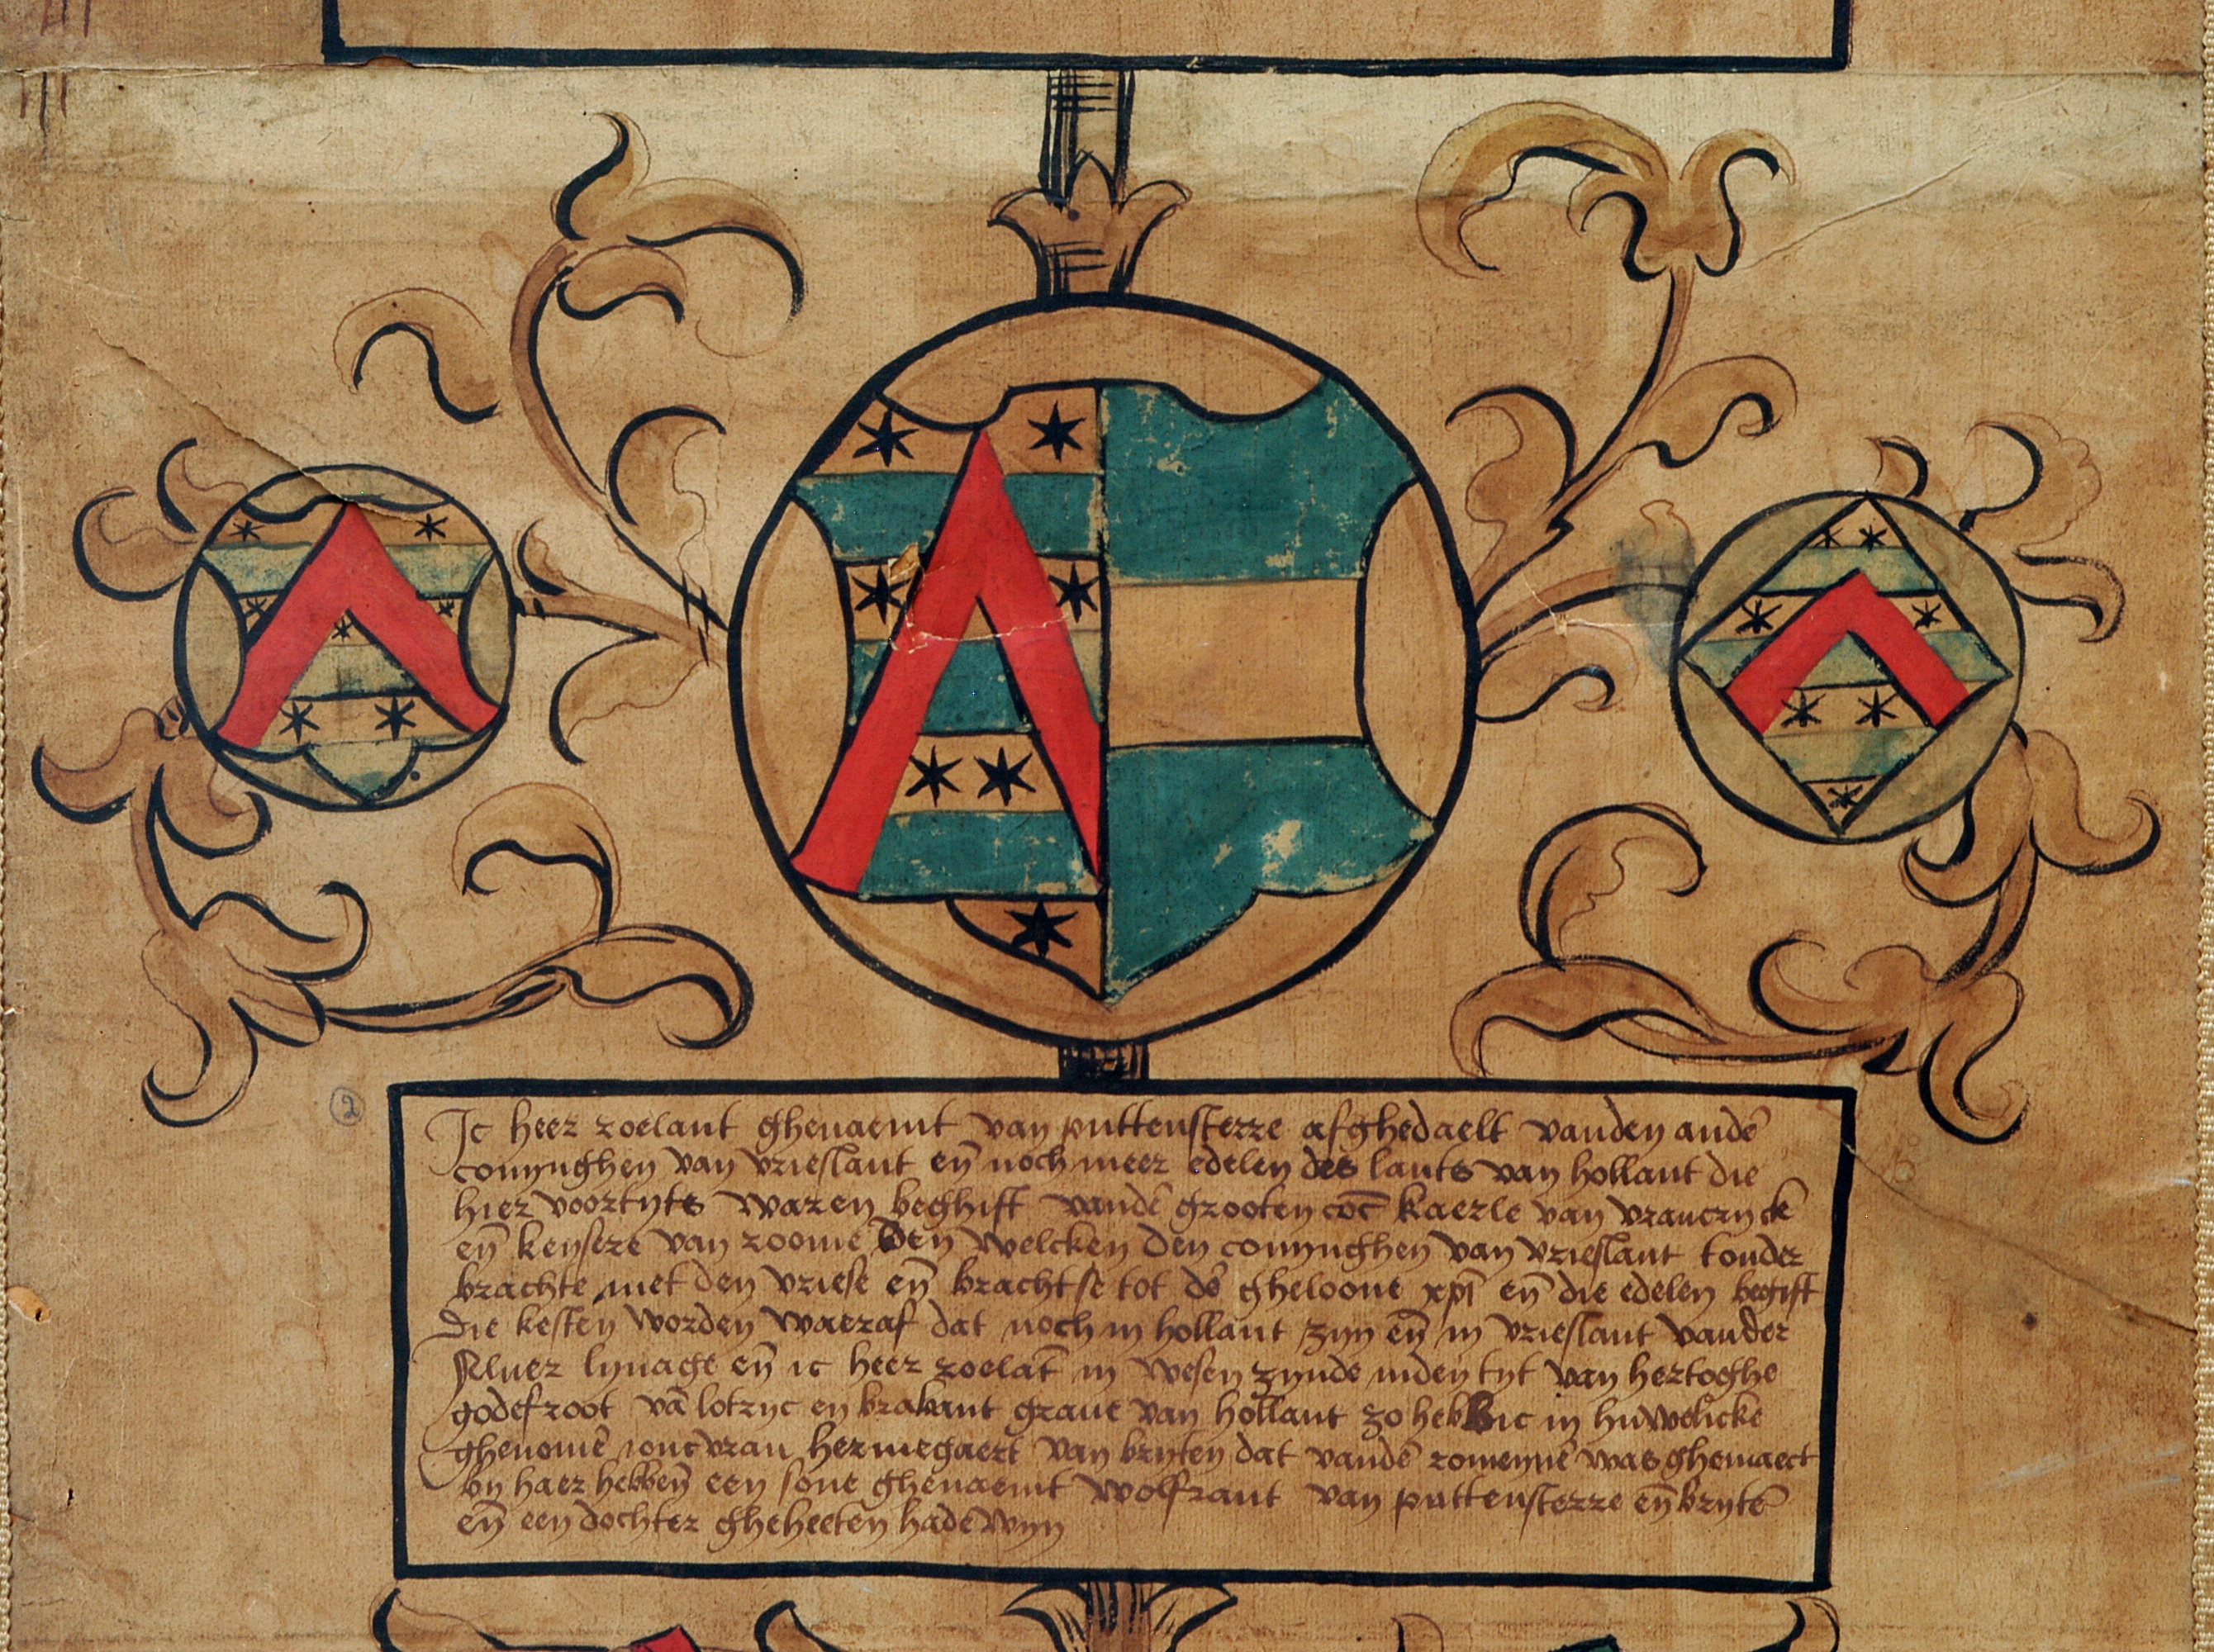 2
Ic heer zoelant ghenaemt van puttensterre afghedaelt vanden andē
conynghen van vrieslant eñ noch meer edelen des lants van hollant die
hier voortyts waren beghift vandē grooten coc̄ kaerle van vrancrycke
eñ keysere van roome den welcken den conynghen van vrieslant tonder
brachte met den vriese eñ brachtse tot dē gheloove xpī eñ die edelen begift
die kesten worden waeraf dat noch in hollant zyn eñ in vrieslant vander
selver lynage eñ ic heer zoelāt in wesen zynde inden tyt van hertoghe
godefroot vā lotryc en brabant grave van hollant zo hebbic in huwelicke
ghenomē joncvrau hermegaert van bryten dat vandē romeynē was ghemaect
by haer hebbeñ een sone ghenaemt wolfrant van puttensterre eñ brytē
eñ een dochter gheheeten hadēwyn